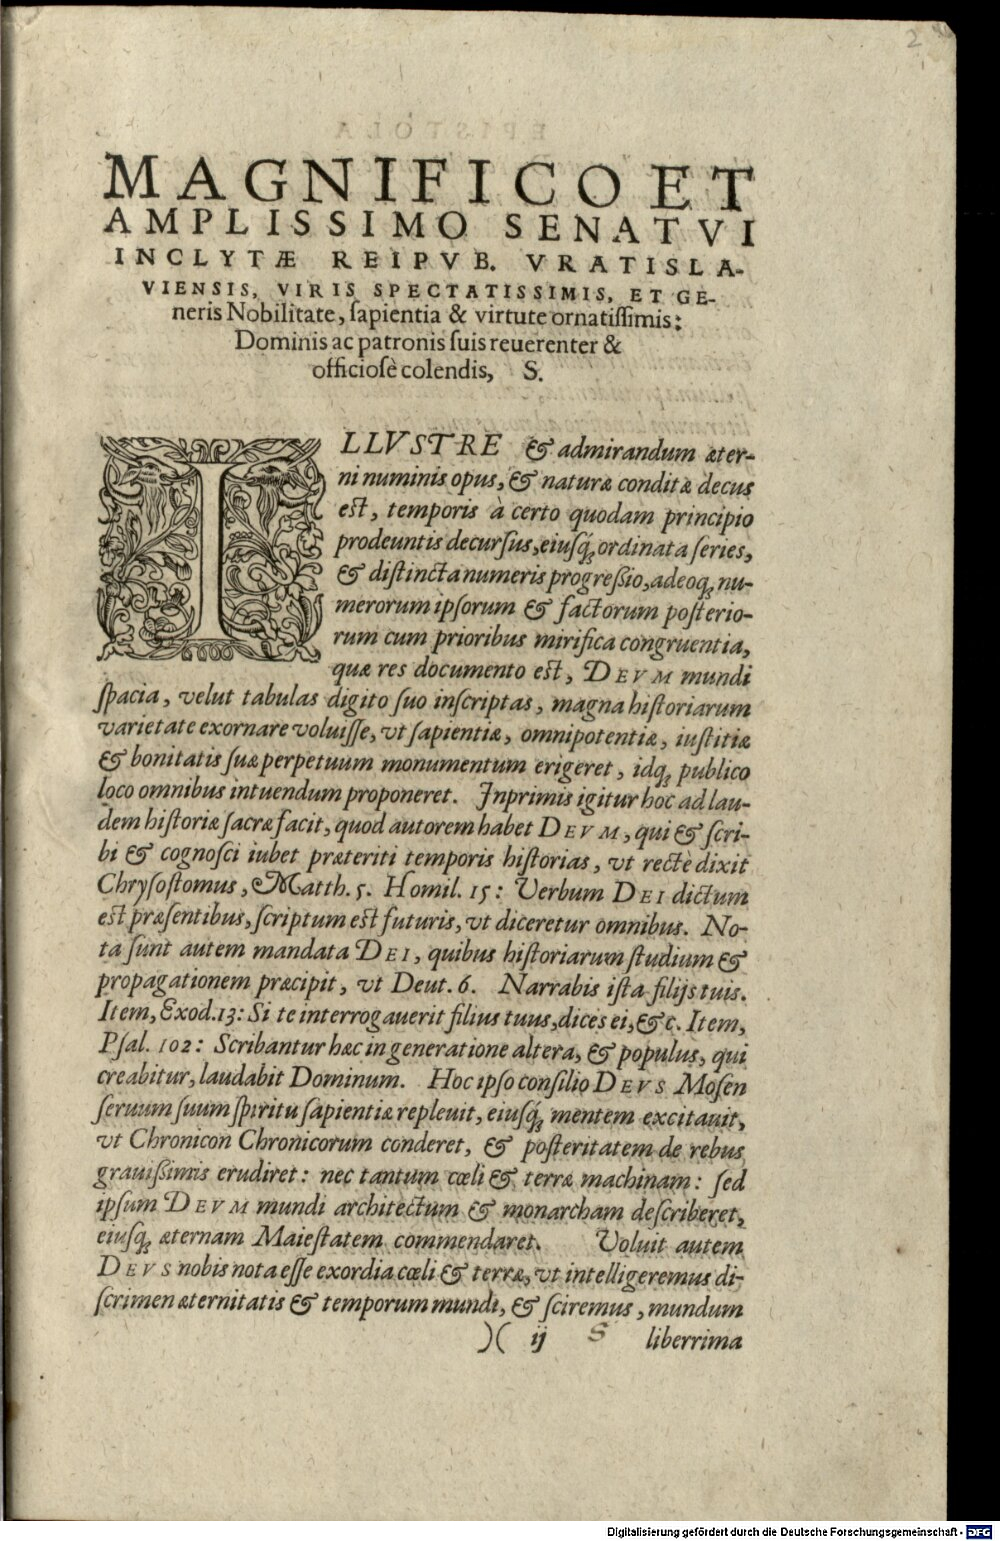 2
MAGNIFICO ET
AMPLISSIMO SENATVI
INCLYTÆ REIPVB. VRATISLA-
VIENSIS, VIRIS SPECTATISSIMIS, ET GE-
neris Nobilitate, ſapientia & virtute ornatiſſimis:
Dominis ac patronis ſuis reuerenter &
officioſè colendis, S.
ILLVSTRE & admirandum æter-
ni numinis opus, & naturæ conditæ decus
eſt, temporis à certo quodam principio
prodeuntis decurſus, eiuſq́; ordinata ſeries,
& diſtincta numeris progreßio, adeoq; nu-
merorum ipſorum & factorum poſterio-
rum cum prioribus mirifica congruentia,
quæ res documento eſt, DEVM mundi
ſpacia, velut tabulas digito ſuo inſcriptas, magna hiſtoriarum
varietate exornare voluiſſe, vt ſapientiæ, omnipotentiæ, iuſtitiæ
& bonitatis ſuæ perpetuum monumentum erigeret, idq; publico
loco omnibus intuendum proponeret. Inprimis igitur hoc ad lau-
dem hiſtoriæ ſacræ facit, quod autorem habet DEVM, qui & ſcri-
bi & cognoſci iubet præteriti temporis hiſtorias, vt rectè dixit
Chryſoſtomus, Matth. 5. Homil. 15: Verbum DEI dictum
eſt præſentibus, ſcriptum eſt futuris, vt diceretur omnibus. No-
ta ſunt autem mandata DEI, quibus hiſtoriarum ſtudium &
propagationem præcipit, vt Deut. 6. Narrabis iſta filijs tuis.
Item, Exod. 13: Si te interrogauerit filius tuus, dices ei, &c. Item,
Pſal. 102: Scribantur hæc in generatione altera, & populus, qui
creabitur, laudabit Dominum. Hoc ipſo conſilio DEVS Moſen
ſeruum ſuum ſpiritu ſapientiæ repleuit, eiuſq́; mentem excitauit,
vt Chronicon Chronicorum conderet, & poſteritatem de rebus
grauißimis erudiret: nec tantum cœli & terræ machinam: ſed
ipſum DEVM mundi architectum & monarcham deſcriberet,
eiuſq; æternam Maieſtatem commendaret. Voluit autem
DEVS nobis nota eſſe exordia cœli & terræ, vt intelligeremus di-
ſcrimen æternitatis & temporum mundi, & ſciremus, mundum
)( ij S liberrima
Digitalisierung gefördert durch die Deutsche Forschungsgemeinschaft - DFG